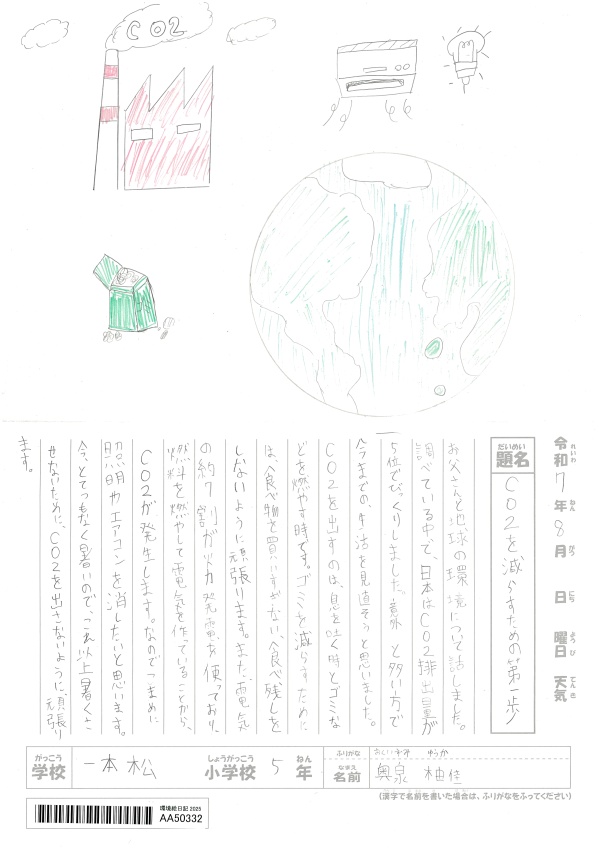 CO2
令和7年8月 日 曜日 天気
れいわ ねん がつ にち ようび てんき
だいめい
題名
CO2を減らすための第一歩
お父さんと地球の環境について話しました。
調べている中で、日本はCO2排出量が
5位でびっくりしました。意外と多い方で
今までの、生活を見直そうと思いました。
CO2を出すのは、息を吐く時とゴミな
どを燃やす時です。ゴミを減らすために
は、食べ物を買いすぎない、食べ残しを
しないように頑張ります。また、電気
の約7割が火力発電を使っており、
燃料を燃やして電気を作っていることから、
CO2が発生します。なのでこまめに
照明やエアコンを消したいと思います。
今、とてつもなく暑いので、これ以上暑くさ
せないために、CO2を出さないように、頑張り
ます。
がっこう しょうがっこう ねん
学校 一本松 小学校 5年
ふりがな
なまえ
名前 奥泉 柚佳
(漢字で名前を書いた場合は、ふりがなをふってください)
環境絵日記 2025
AA50332